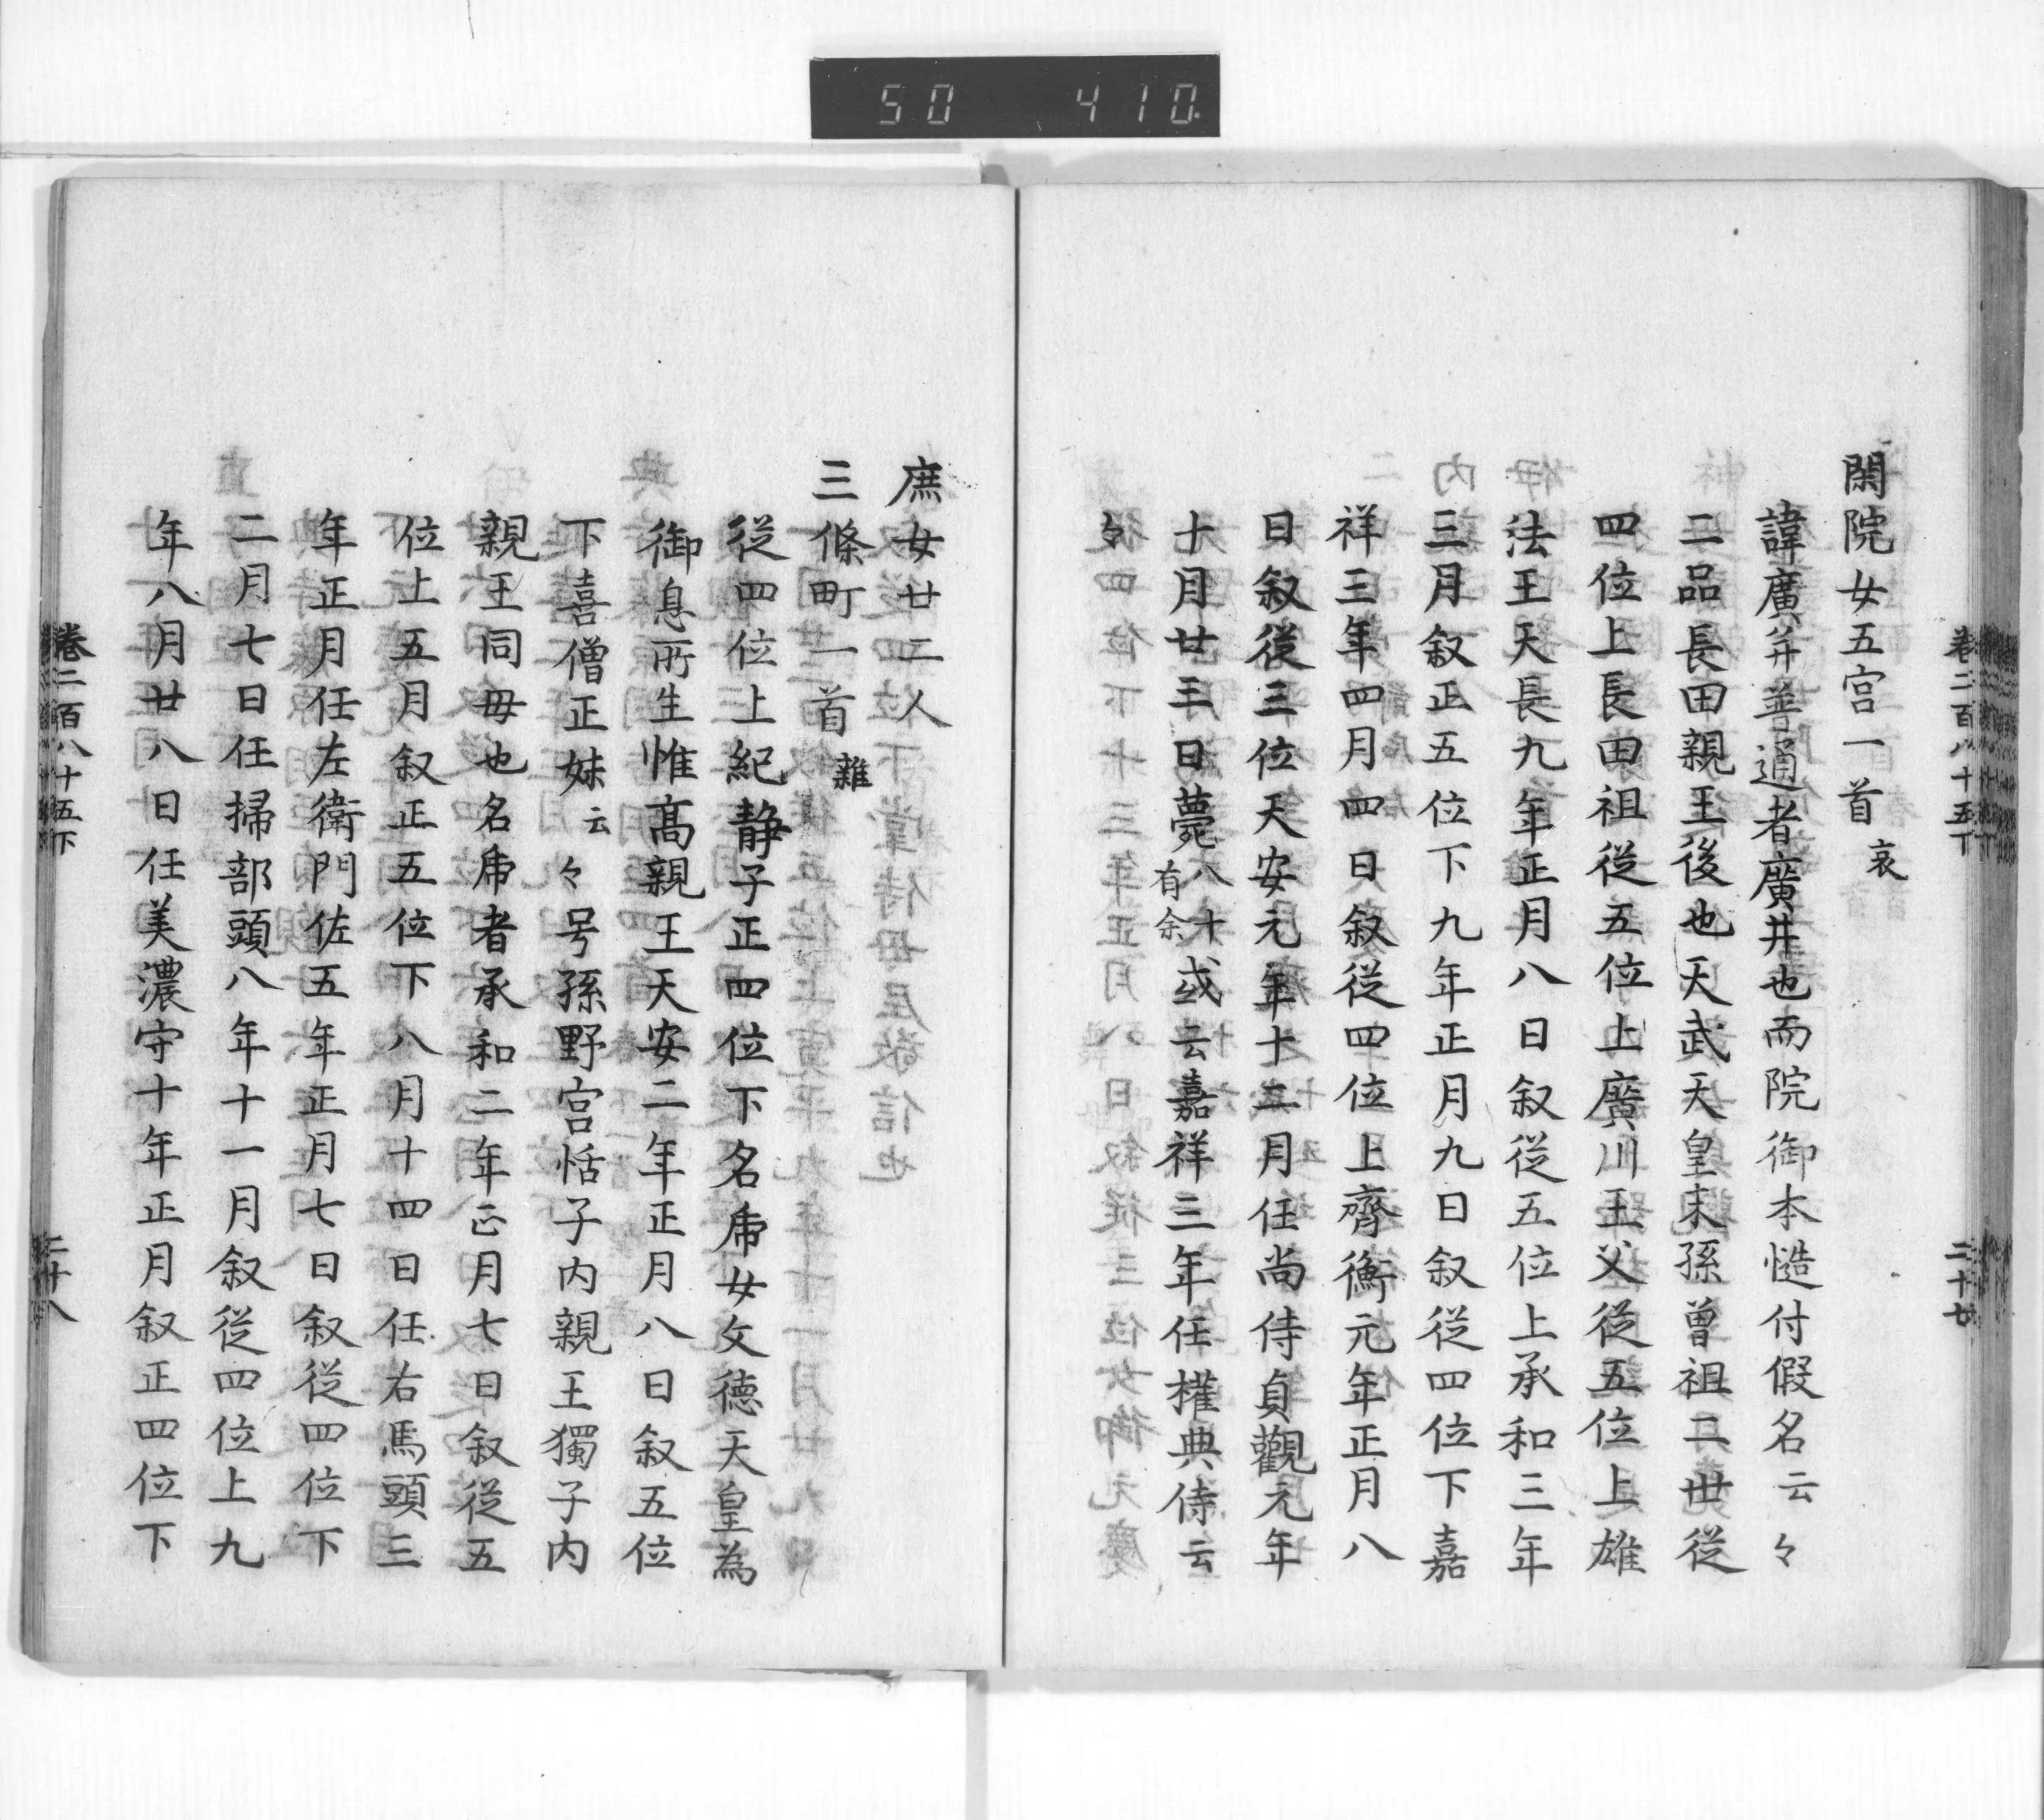 50 410.
卷二百八十五下
二十七
閑院女五宮一首 哀
諱廣井善通者廣井也而院御本愷付假名云々
二品長田親王後也天武天皇末孫曾祖二世從
四位上長田祖從五位上廣川王父從五位上雄
法王天長九年正月八日叙從五位上承和三年
三月叙正五位下九年正月九日叙從四位下嘉
祥三年四月四日叙從四位上齊衡元年正月八
日叙從三位天安元年十二月任尚侍貞觀元年
十月廿三日薨八十有余或云嘉祥三年任權典侍云
々
庶女廿二人
三條町一首 雜
從四位上紀静子正四位下名虎女文德天皇為
御息所生惟髙親王天安二年正月八日叙五位
下喜僧正妹云々号孫野宮恬子內親王獨子內
親王同母也名虎者承和二年正月七日叙從五
位上五月叙正五位下八月十四日任右馬頭三
年正月任左衛門佐五年正月七日叙從四位下
二月七日任掃部頭八年十一月叙從四位上九
年八月廿八日任美濃守十年正月叙正四位下
卷二百八十五下
二十八